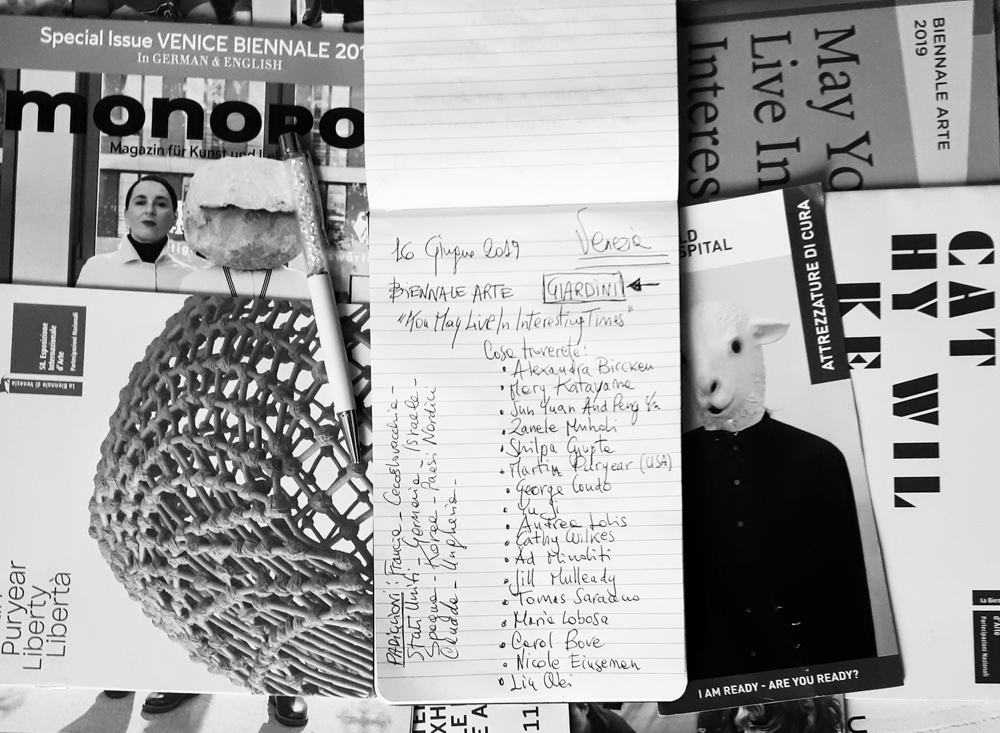 Special Issue VENICE BIENNALE 201
In GERMAN & ENGLISH
monopo
Magazin für Kunst und L
58. Esposizione
Internazionale
d'Arte
Partecipazioni Nazionali
La Biennale di Venezia
Puryear
Liberty
Libertà
16 Giugno 2019
Venezia
BIENNALE ARTE GIARDINI
"You May Live In Interesting Times"
Cosa troverete:
• Alexandra Bircken
• Mary Katayama
• Sun Yuan And Peng Yu
• Zanele Muholi
• Shilpa Gupta
• Martin Puryear (USA)
• George Condo
• Yu Ji
• Andrea Lolis
• Cathy Wilkes
• Ad Minoliti
• Jill Mulleady
• Tomas Saraceno
• Maria Loboda
• Carol Bove
• Nicole Einseman
• Liu Wei
PADIGLIONI: Francia - Cecoslovacchia -
Stati Uniti - Germania - Israele -
Spagna - Korea - Paesi Nordici
Canada - Ungheria -
BIENNALE ARTE
2019
May Yo
Live In
Interes
LD
SPITAL
ATTREZZATURE DI CURA
I AM READY - ARE YOU READY?
CAT
HY WIL
KE
La Bien
d'Arte
Partecipazioni Nazionali
11